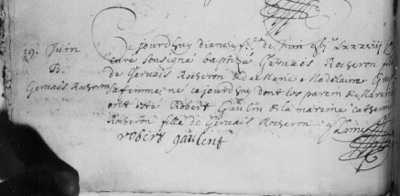 19. Juin
B.
Gervais Rocheron
Ce jourdhuy dixneuf.e de juin
curé soussigné baptizé Gervais Rocheron
de Gervais Rocheron & de Marie Madelaine
sa femme né ce jourdhuy dont les parein & Mareine
ont esté Robert Gaulin & la mareine Catherine
Rocheron fille de Gervais Rocheron
robert gaulent